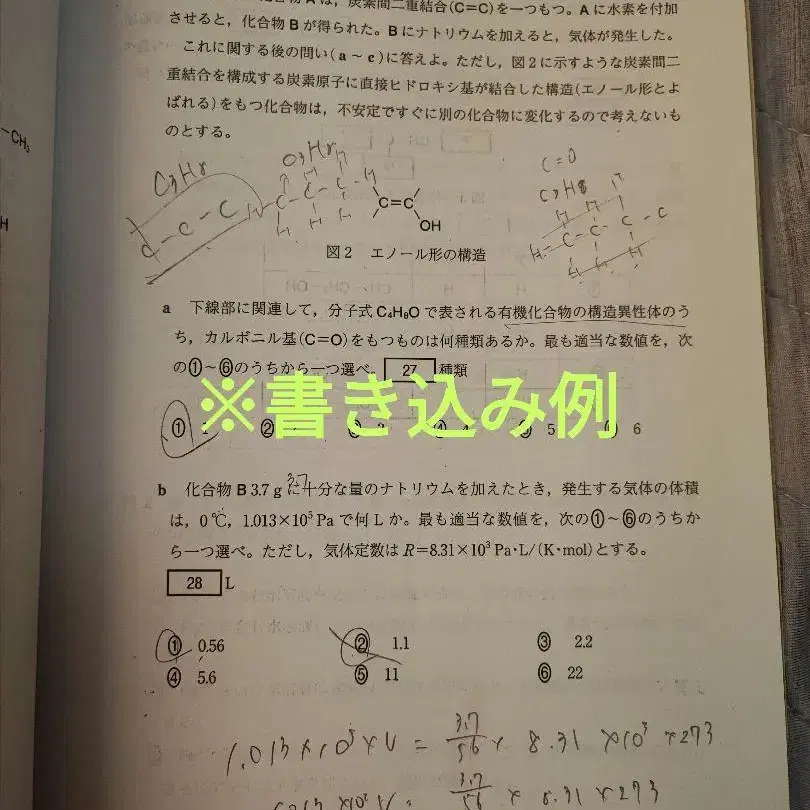 は，炭素間二重結合(C=C)を一つもつ。Aに水素を付加
させると，化合物Bが得られた。Bにナトリウムを加えると，気体が発生した。
これに関する後の問い(a～c)に答えよ。ただし，図2に示すような炭素間二
重結合を構成する炭素原子に直接ヒドロキシ基が結合した構造(エノール形とよ
ばれる)をもつ化合物は，不安定ですぐに別の化合物に変化するので考えないも
のとする。
-CH₃
H
C=O
C₃H₈
C=C
OH
図2 エノール形の構造
a 下線部に関連して，分子式C₄H₈Oで表される有機化合物の構造異性体のう
ち，カルボニル基(C=O)をもつものは何種類あるか。最も適当な数値を，次
の①～⑥のうちから一つ選べ。 27 種類
※書き込み例
① 1 ② ③ 3 5 6
b 化合物B 3.7 gに十分な量のナトリウムを加えたとき，発生する気体の体積
3.7
は，0℃，1.013×10⁵ Paで何Lか。最も適当な数値を，次の①～⑥のうちか
ら一つ選べ。ただし，気体定数はR=8.31×10³ Pa·L/(K·mol)とする。
28 L
① 0.56 ② 1.1 ③ 2.2
④ 5.6 ⑤ 11 ⑥ 22
1.013×10⁵×V = 3.7/56 × 8.31 ×10³ ×273
3.7/56 × 8.31 × 273